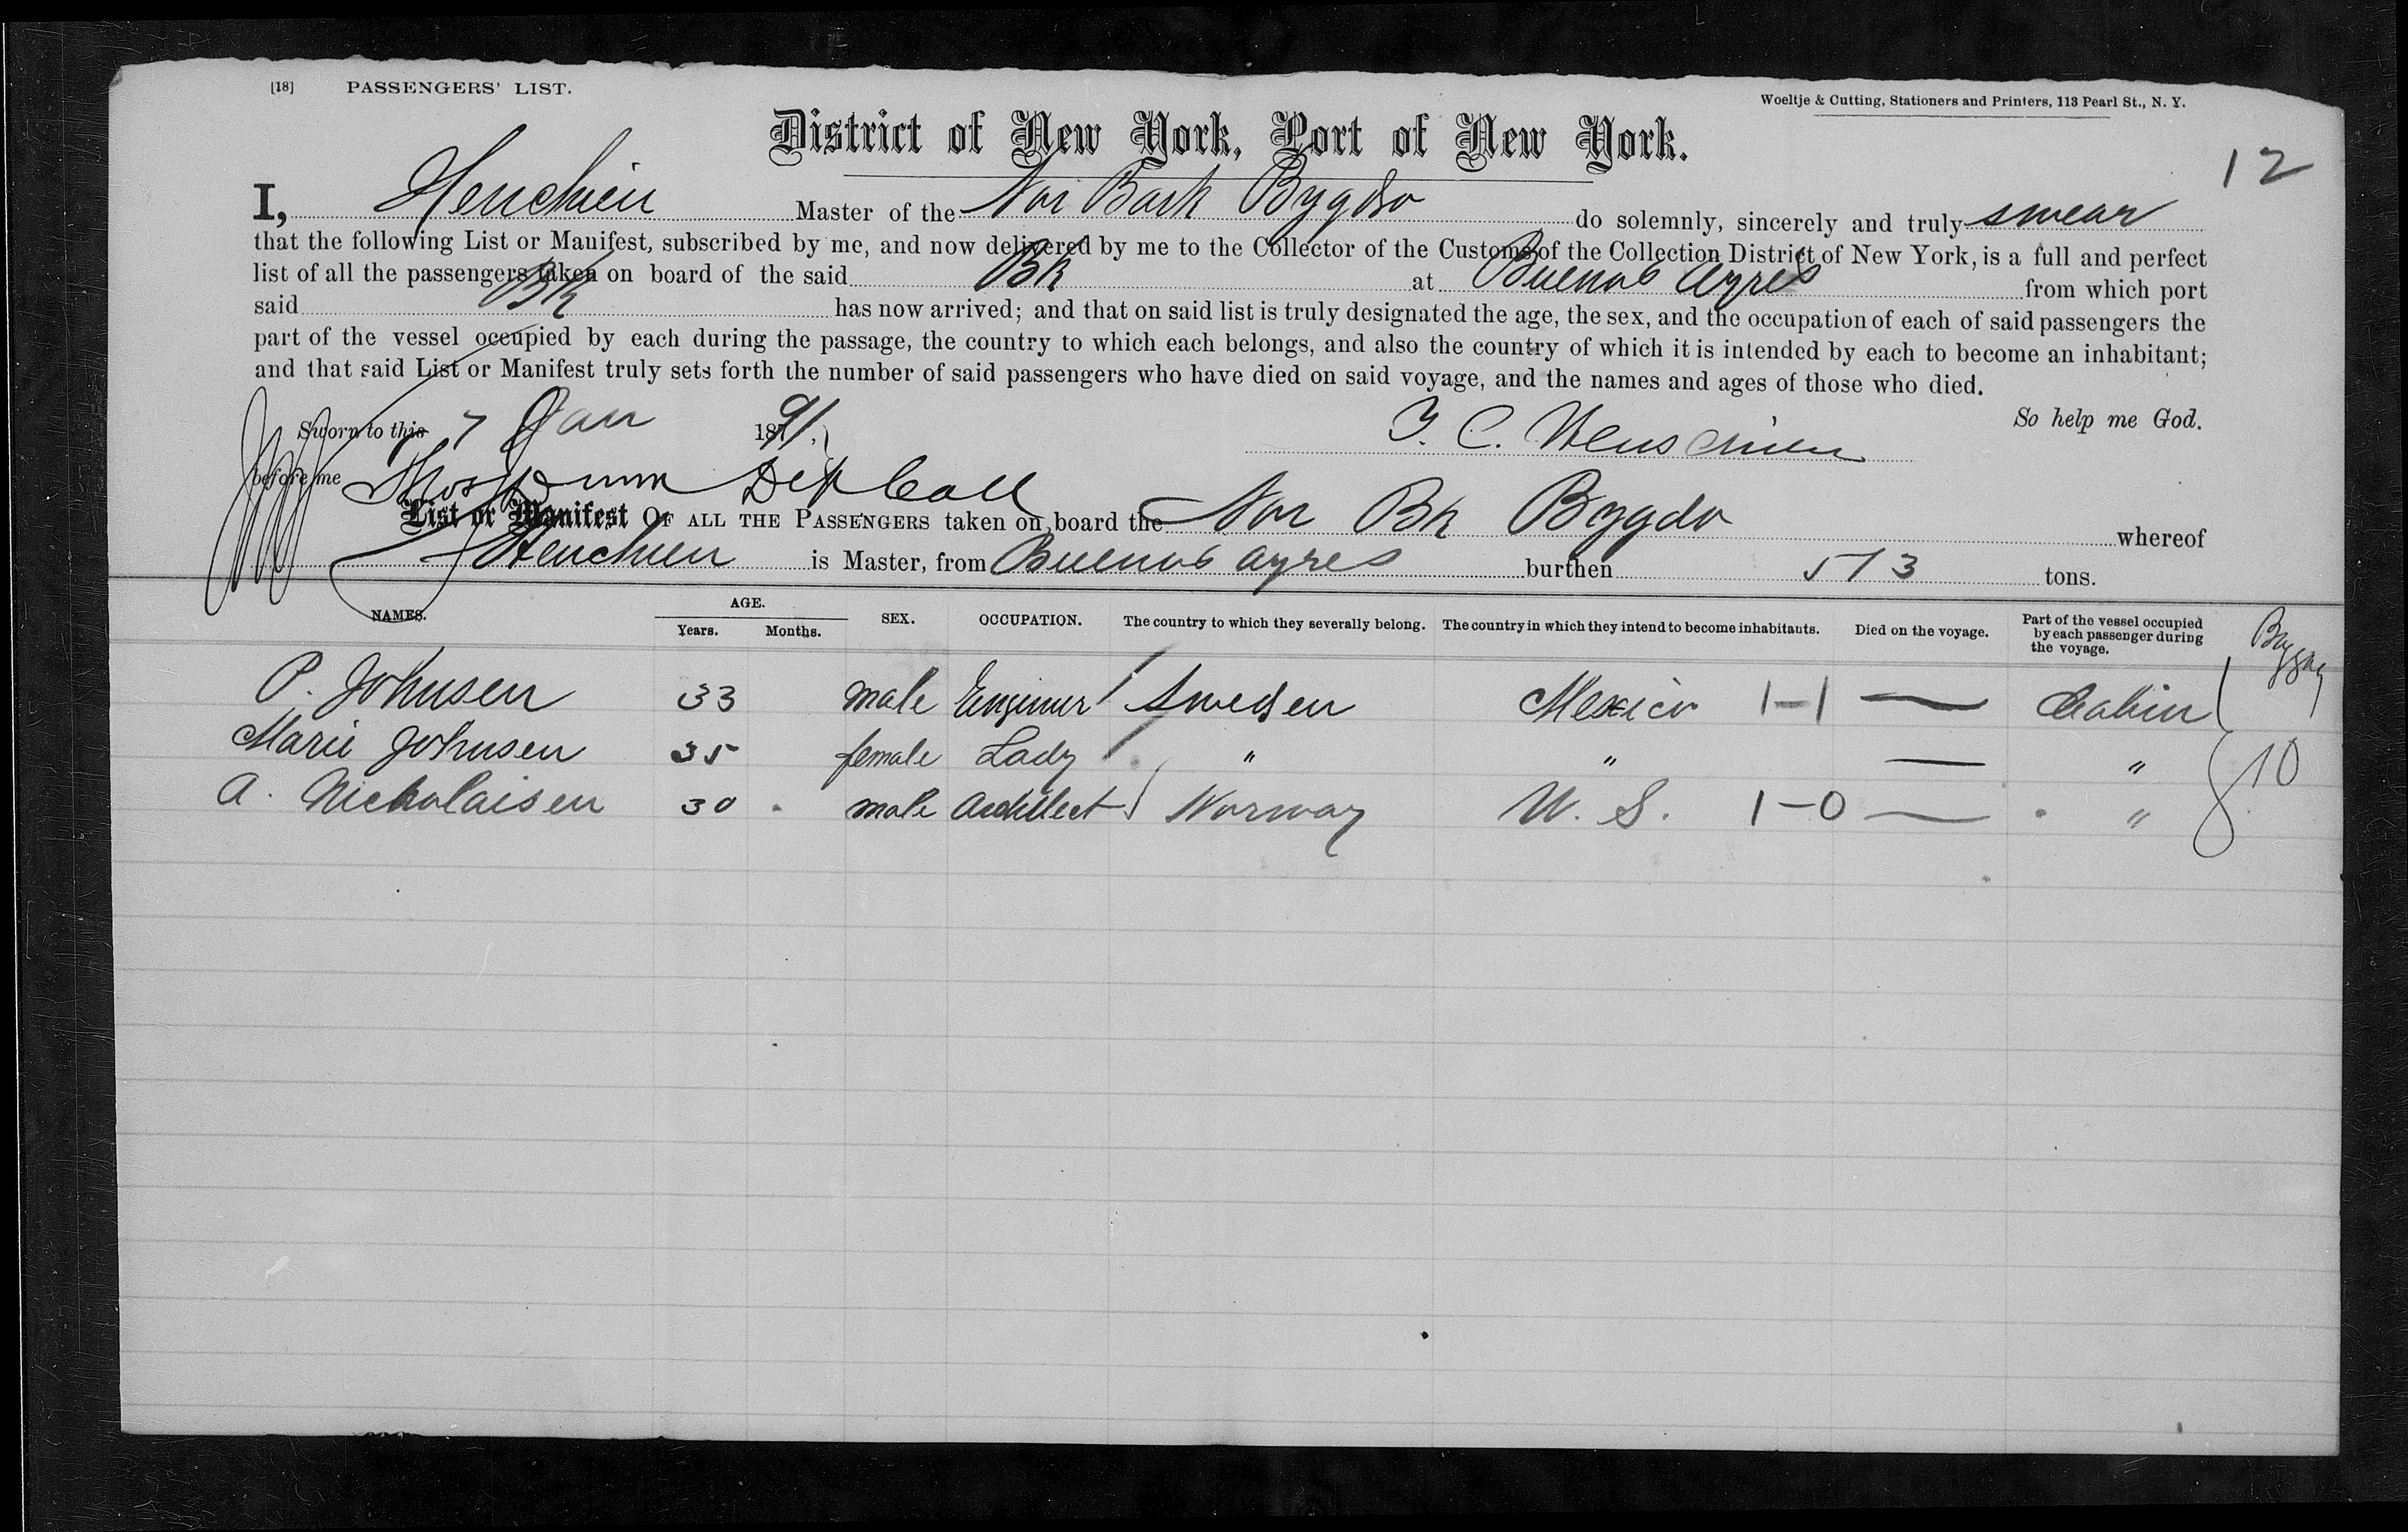 [18] PASSENGERS' LIST.
Woeltje & Cutting, Stationers and Printers, 113 Pearl St., N. Y.
District of New York, Port of New York.
12
I, Henchien Master of the Nor Bark Bygdo do solemnly, sincerely and truly swear
that the following List or Manifest, subscribed by me, and now delivered by me to the Collector of the Customs of the Collection District of New York, is a full and perfect
list of all the passengers taken on board of the said Bk at Buenos Ayres from which port
said Bk has now arrived; and that on said list is truly designated the age, the sex, and the occupation of each of said passengers the
part of the vessel occupied by each during the passage, the country to which each belongs, and also the country of which it is intended by each to become an inhabitant;
and that said List or Manifest truly sets forth the number of said passengers who have died on said voyage, and the names and ages of those who died.
So help me God.
Sworn to this 7 Jan 1891.
before me Thos Dunn Dep Coll
List or Manifest OF ALL THE PASSENGERS taken on board the Nor Bk Bygdo whereof
Henchien is Master, from Buenos Ayres burthen 513 tons.
NAMES. AGE. Years. Months. SEX. OCCUPATION. The country to which they severally belong. The country in which they intend to become inhabitants. Died on the voyage. Part of the vessel occupied by each passenger during the voyage.
P. Johnsen 33 male Engineer Sweden Mexico 1-1 — Cabin
Marie Johnsen 35 female Lady " " — " 10
A. Nickolaisen 30 male Architect Norway U. S. 1-0 — "